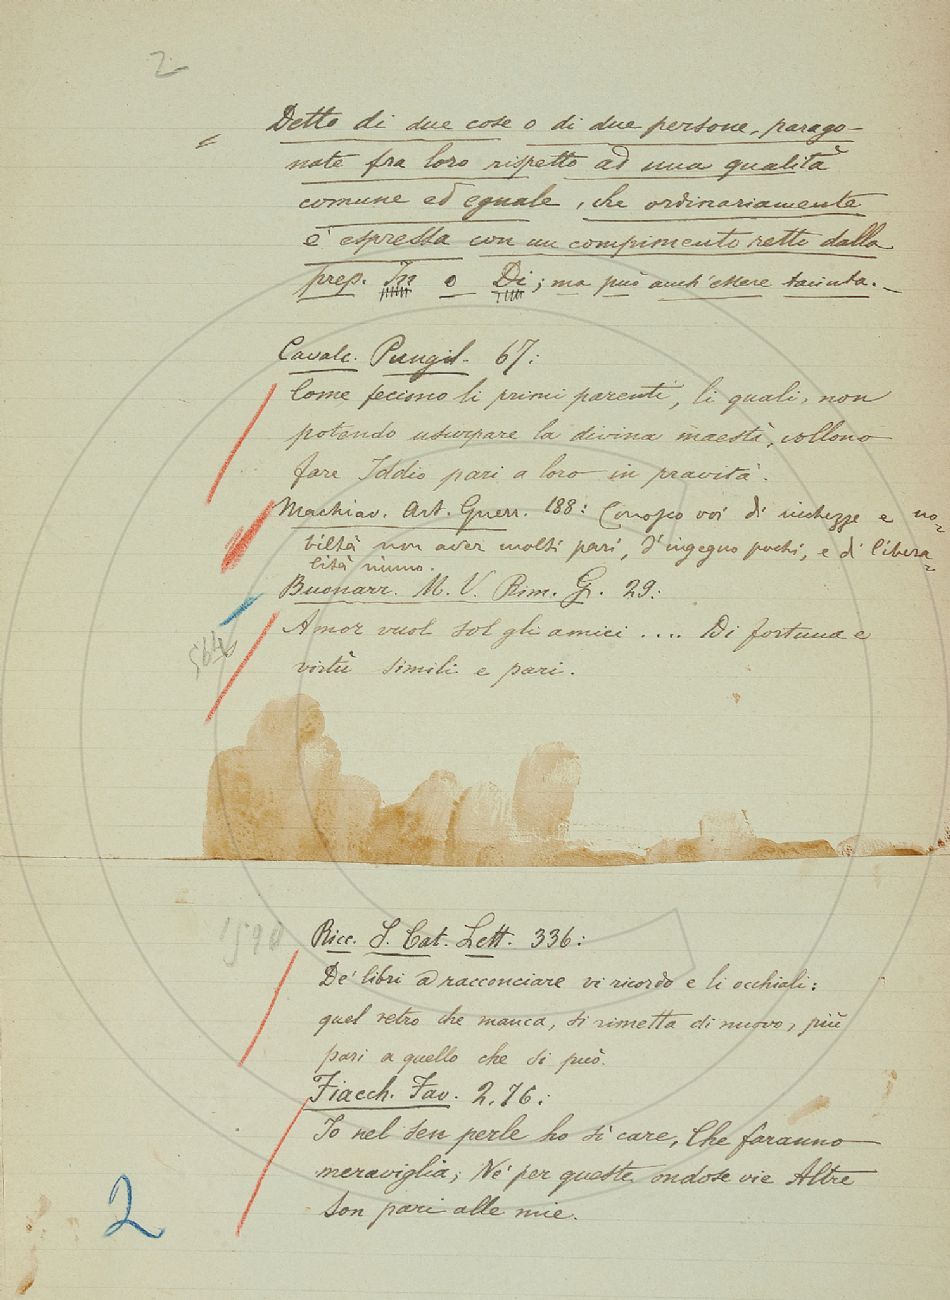 2
Detto di due cose o di due persone, parago-
nate fra loro rispetto ad una qualità
comune ed eguale, che ordinariamente
è espressa con un compimento retto dalla
prep. In o Di; ma può anch'essere taciuta. _
Cavalc. Pungil. 67:
Come fecimo li primi parenti, li quali, non
potendo usurpare la divina maestà, vollono
fare Iddio pari a loro in pravità.
Machiav. Art. Guerr. 188: Conosco voi di ricchezze e no-
biltà non aver molti pari, d'ingegno pochi, e di libera-
lità niuno.
Buonarr. M. V. Rim. G. 29:
Amor vuol sol gli amici .... Di fortuna e
564
virtù simili e pari.
1590
Ricc. S. Cat. Lett. 336:
De' libri a racconciare vi ricordo e li occhiali:
quel vetro che manca, si rimetta di nuovo, più
pari a quello che si può.
Fiacch. Fav. 2.76:
Io nel sen perle ho sì care, Che faranno
meraviglia; Nè per queste ondose vie Altre
Son pari alle mie.
2